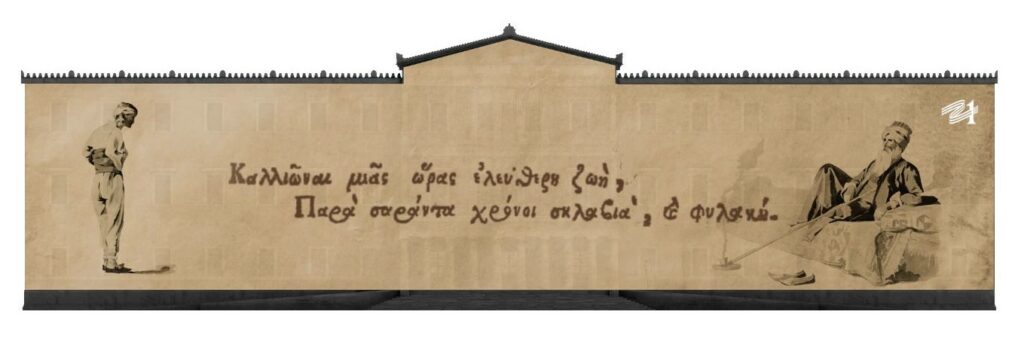 Καλλιῶναι μιᾶς ὥρας ἐλεύθερη ζωὴ,
Παρὰ σαράντα χρόνοι σκλαβιὰ, ϗ φυλακή.
21